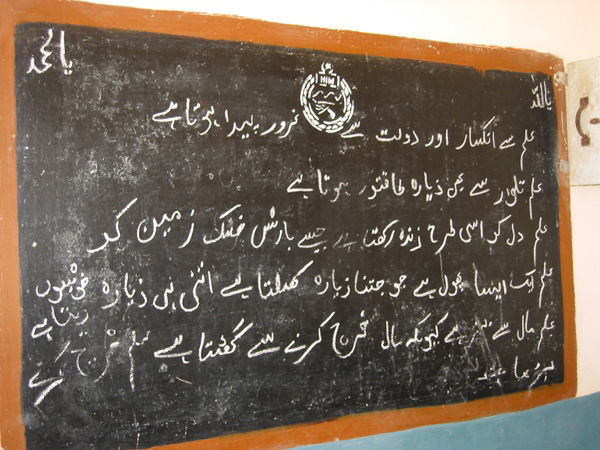 یا اللہ
یا محمد
علم سے انکسار اور دولت سے غرور پیدا ہوتا ہے
علم تلوار سے بھی زیادہ طاقتور ہوتا ہے
علم دل کو اسی طرح زندہ رکھتا ہے جیسے بارش خشک زمین کو
علم ایک ایسا پھول ہے جو جتنا زیادہ کھلتا ہے اتنی ہی زیادہ خوشبو دیتا ہے
علم مال سے بہتر ہے کیونکہ مال خرچ کرنے سے گھٹتا ہے علم خرچ کرنے